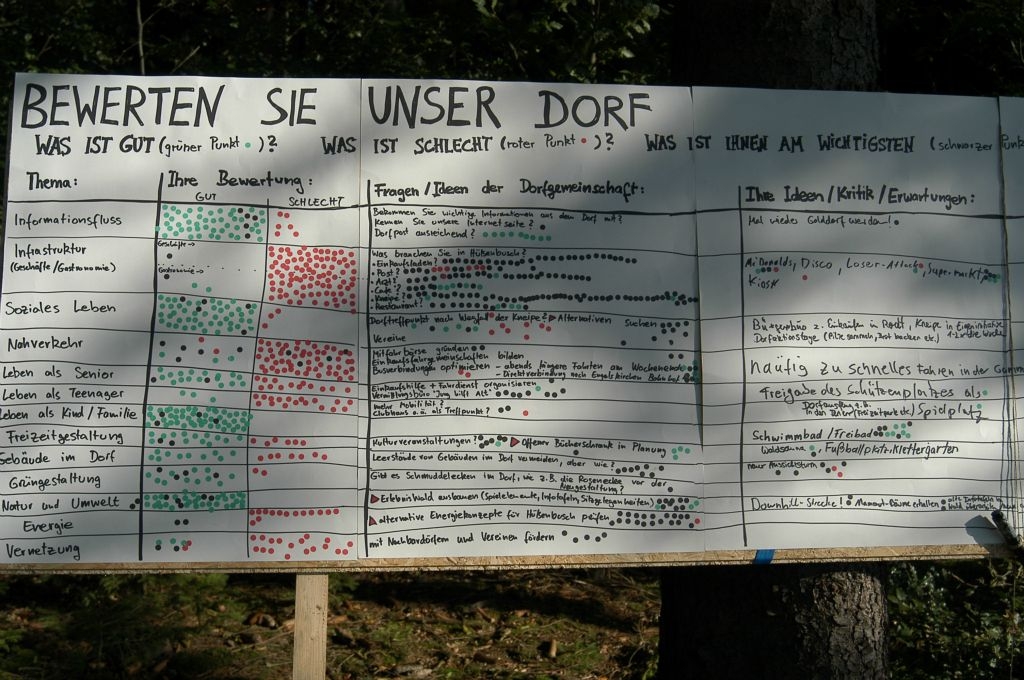 BEWERTEN SIE UNSER DORF
WAS IST GUT (grüner Punkt )? WAS IST SCHLECHT (roter Punkt )? WAS IST IHNEN AM WICHTIGSTEN (schwarzer Punk
Thema: Ihre Bewertung: Fragen/Ideen der Dorfgemeinschaft: Ihre Ideen/Kritik/Erwartungen:
GUT SCHLECHT
Informationsfluss
Bekommen Sie wichtige Informationen aus dem Dorf mit?
Kennen Sie unsere Internetseite?
Dorfpost ausreichend?
Mal wieder Golddorf werden!
Infrastruktur
(Geschäfte/Gastronomie)
Geschäfte →
Gastronomie →
Was brauchen Sie in Hülsenbusch?
- Einkaufsladen?
- Post?
- Arzt?
- Café?
- Kneipe?
- Restaurant?
McDonalds, Disco, Loser-Attack, Supermarkt,
Kiosk
Soziales Leben
Dorftreffpunkt nach Wegfall der Kneipe? ▶ Alternativen suchen
Vereine
Bürgerbüro z. Einkaufen in Rodt, Kneipe in Eigeninitiative
Dorfaktionstage (Pilze sammeln, Brot backen etc.)
Nahverkehr
Mitfahrbörse gründen
Einkaufsfahrgemeinschaften bilden
Busverbindungen optimieren - abends längere Fahrten am Wochenende
- Direktverbindung nach Engelskirchen Bahnhof!
häufig zu schnelles Fahren in der
Leben als Senior
Einkaufshilfe + Fahrdienst organisieren
Vermittlungsbüro "Jung hilft Alt"
Freigabe des Schützenplatzes als
Leben als Teenager
mehr Mobilität?
Clubhaus o.ä. als Treffpunkt?
Spielplatz
Leben als Kind/Familie
Freizeitgestaltung
Kulturveranstaltungen? ▶ Offener Bücherschrank in Planung
Schwimmbad/Freibad
Gebäude im Dorf
Leerstände von Gebäuden im Dorf vermeiden, aber wie?
Waldsauna, Fußballplatz, Klettergarten
Grüngestaltung
Gibt es Schmuddelecken im Dorf, wie z.B. die Rosenecke vor der
Neugestaltung?
neuer Aussichtsturm
Natur und Umwelt
▶ ErlebnisWald ausbauen (Spielelemente, Infotafeln, Sitzgelegenheiten)
Downhill-Strecke! Mammut-Bäume erhalten
Energie
▶ alternative Energiekonzepte für Hülsenbusch prüfen
Vernetzung
mit Nachbardörfern und Vereinen fördern